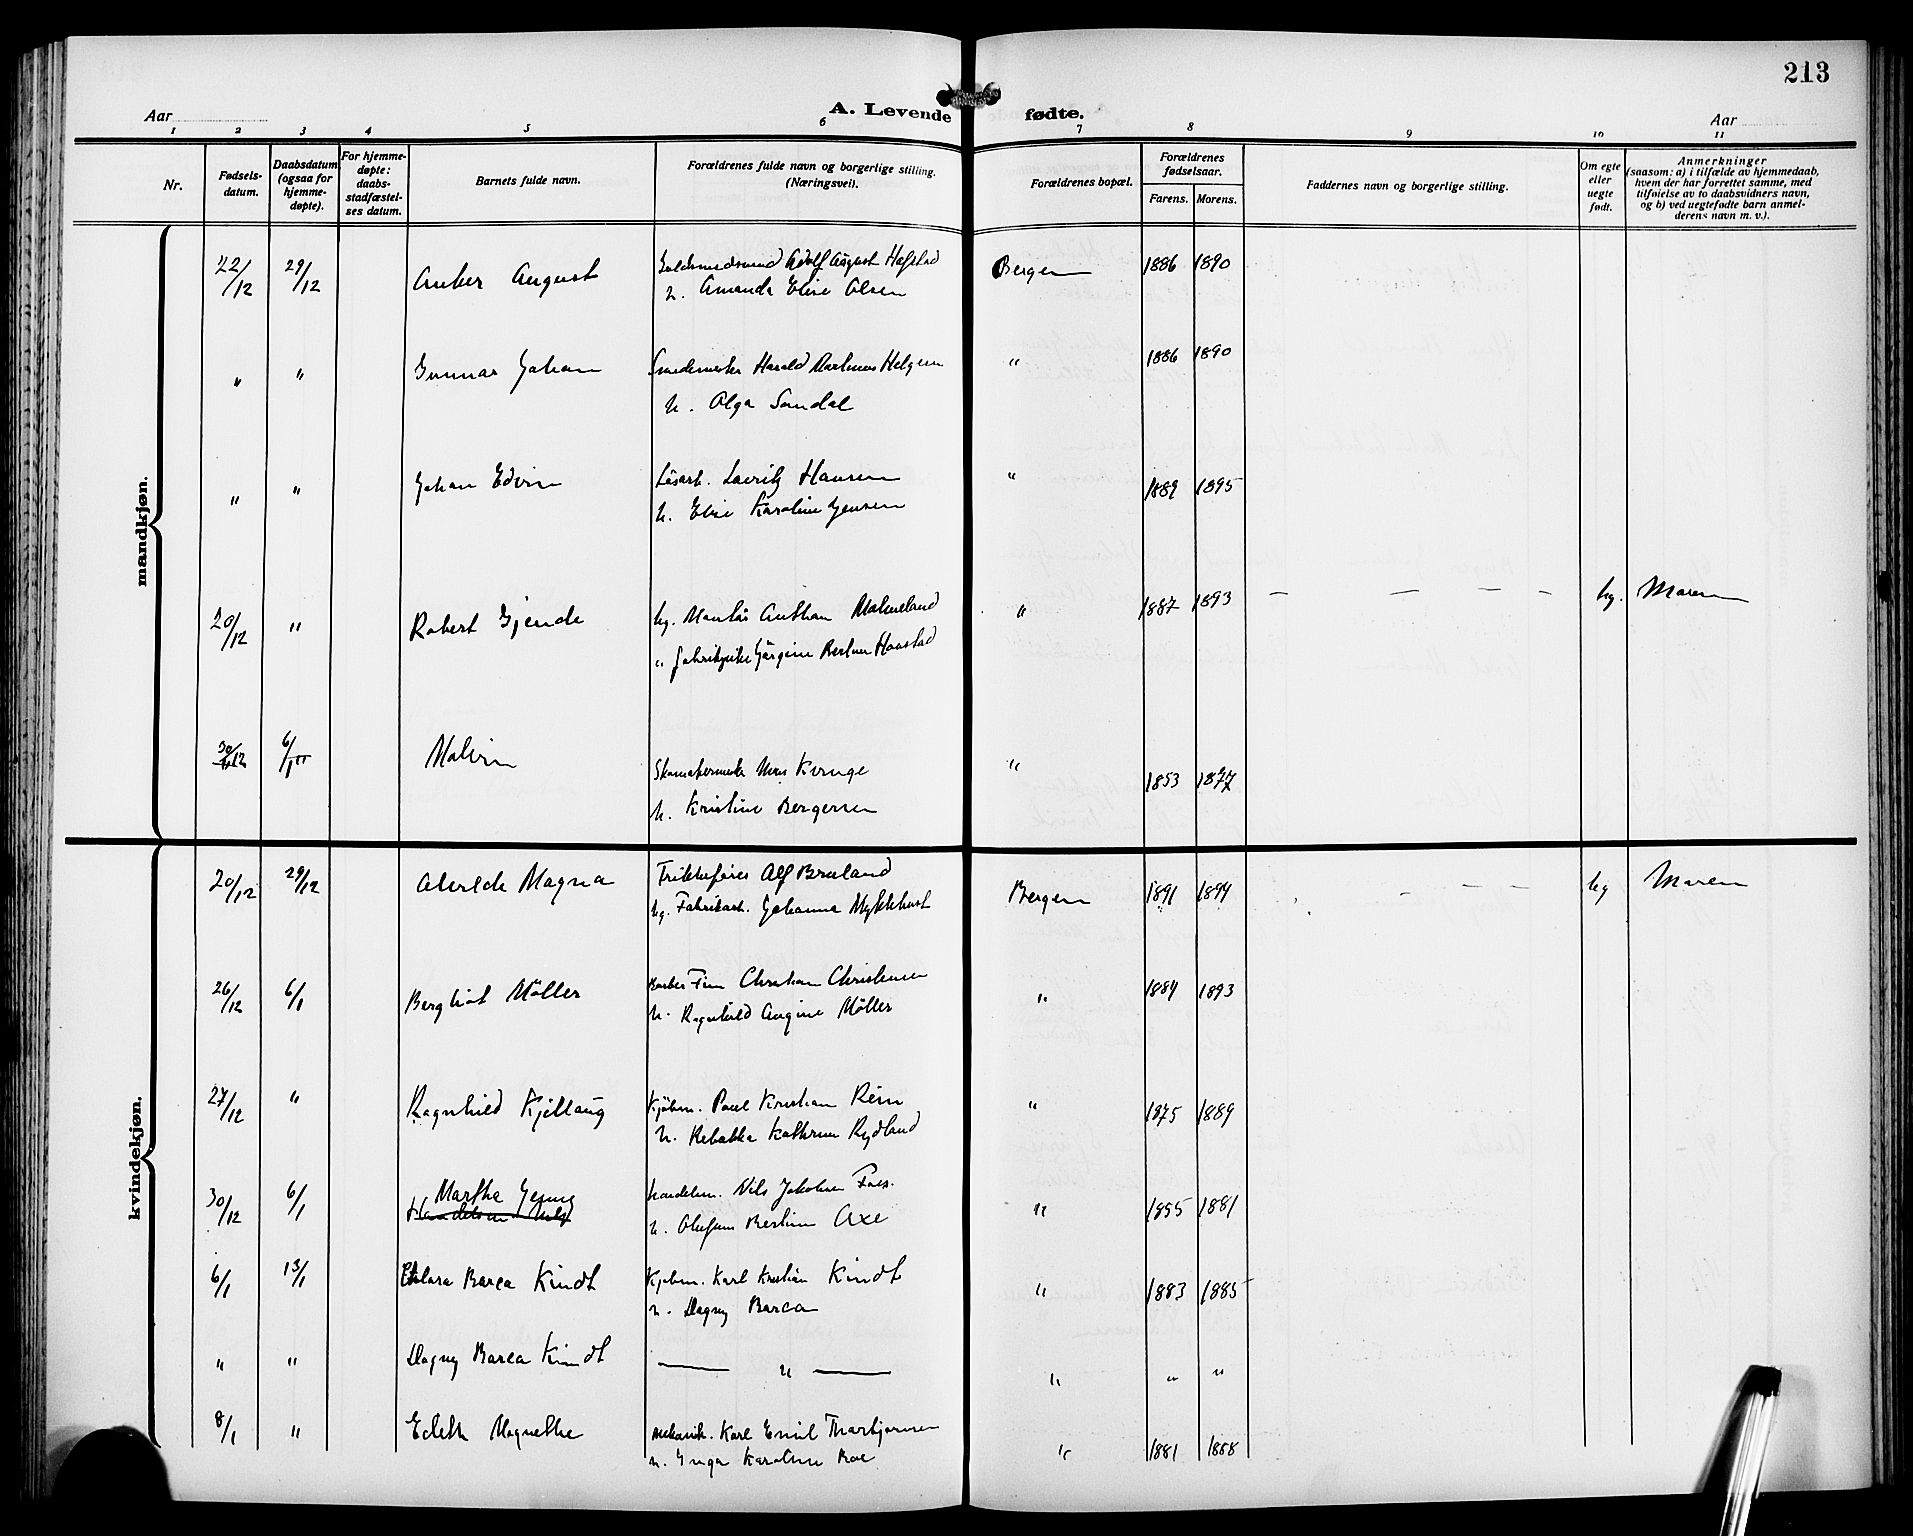 213
Aar
A. Levende fødte.
Aar
1 2 3 4 5 6 7 8 9 10 11
Nr.
Fødsels-
datum.
Daabsdatum
(ogsaa for
hjemme-
døpte).
For hjemme-
døpte:
daabs-
stadfæstel-
ses datum.
Barnets fulde navn.
Forældrenes fulde navn og borgerlige stilling.
(Næringsveil).
Forældrenes bopæl.
Forældrenes
fødselsaar.
Farens. Morens.
Faddernes navn og borgerlige stilling.
Om egte
eller
uegte
født.
Anmerkninger
(saasom: a) i tilfælde av hjemmedaab,
hvem der har forrettet samme, med
tilføielse av to daabsvidners navn,
og b) ved uegtefødte barn anmel-
derens navn m. v.).
mandkjøn.
22/12 29/12 August Adolf August Hafstad Bergen 1886 1890
h. Amanda Elise Olsen
" " Gunnar Johan Smedemester Harald Helgesen " 1886 1890
h. Olga Sandal
" " Johan Edvin Løsarb. Lauritz Hansen " 1889 1895
h. Elise Karoline Jensen
20/12 " Robert Gjende Ug. Malmeland " 1887 1893 – – – – Ug. Moren
" Jørgine Haastad
30/12 6/1 Malvin Skomakermester Kvinge " 1853 1877
h. Kristine Bergersen
kvindekjøn.
20/12 29/12 Magna Alf Bruland Bergen 1891 1894 – – – Ug Moren
Ug. Fabrikarb. Johanna Myklebust
26/12 6/1 Bergliot Möller Barber Finn Christian Christensen " 1884 1893
h. Ragnhild Möller
27/12 " Ragnhild Kjellaug Kjøbm. Paul Kristian Rein " 1875 1889
h. Rebekka Kathrine Rydland
30/12 6/1 Martha Jenny Handelsm. Nils Jakobsen " 1881
h. Axe
6/1 13/1 Clara Barca Kindt Kjøbm. Karl Kristian Kindt " 1883 1885
h. Dagny Barca
" " Dagny Barca Kindt — " — " " "
8/1 " Edith Magnethe Mekanik. Karl Emil Thorbjørnsen " 1881 1888
h. Inga Karoline Boe